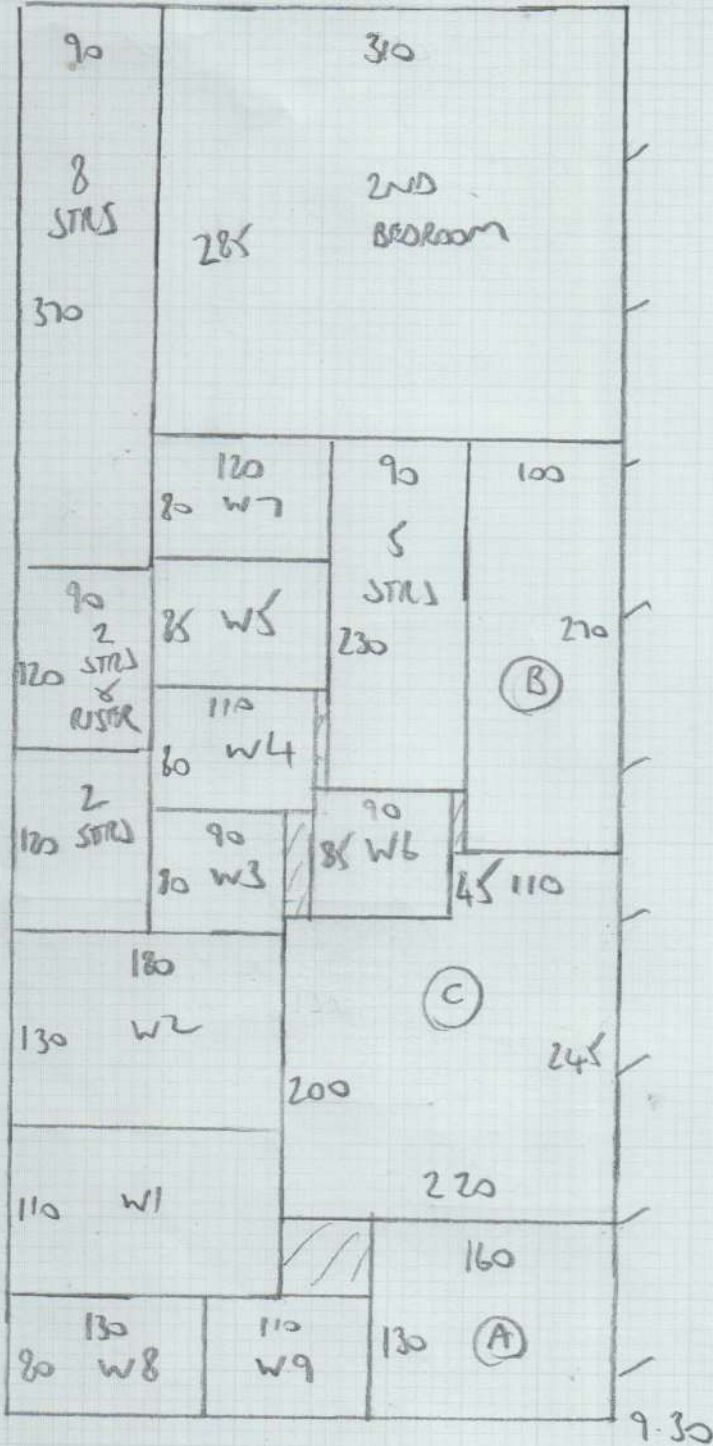 90
310
8
STRS
2ND
BEDROOM
285
370
120
80 W7
90
5
STRS
230
100
270
B
85 W5
90
2
STRS
&
RISER
120
110
80 W4
2
STRS
120
90
80 W3
90
85 W6
45 110
180
130 W2
C
245
200
220
110 W1
160
130 A
130
80 W8
110
W9
9.30